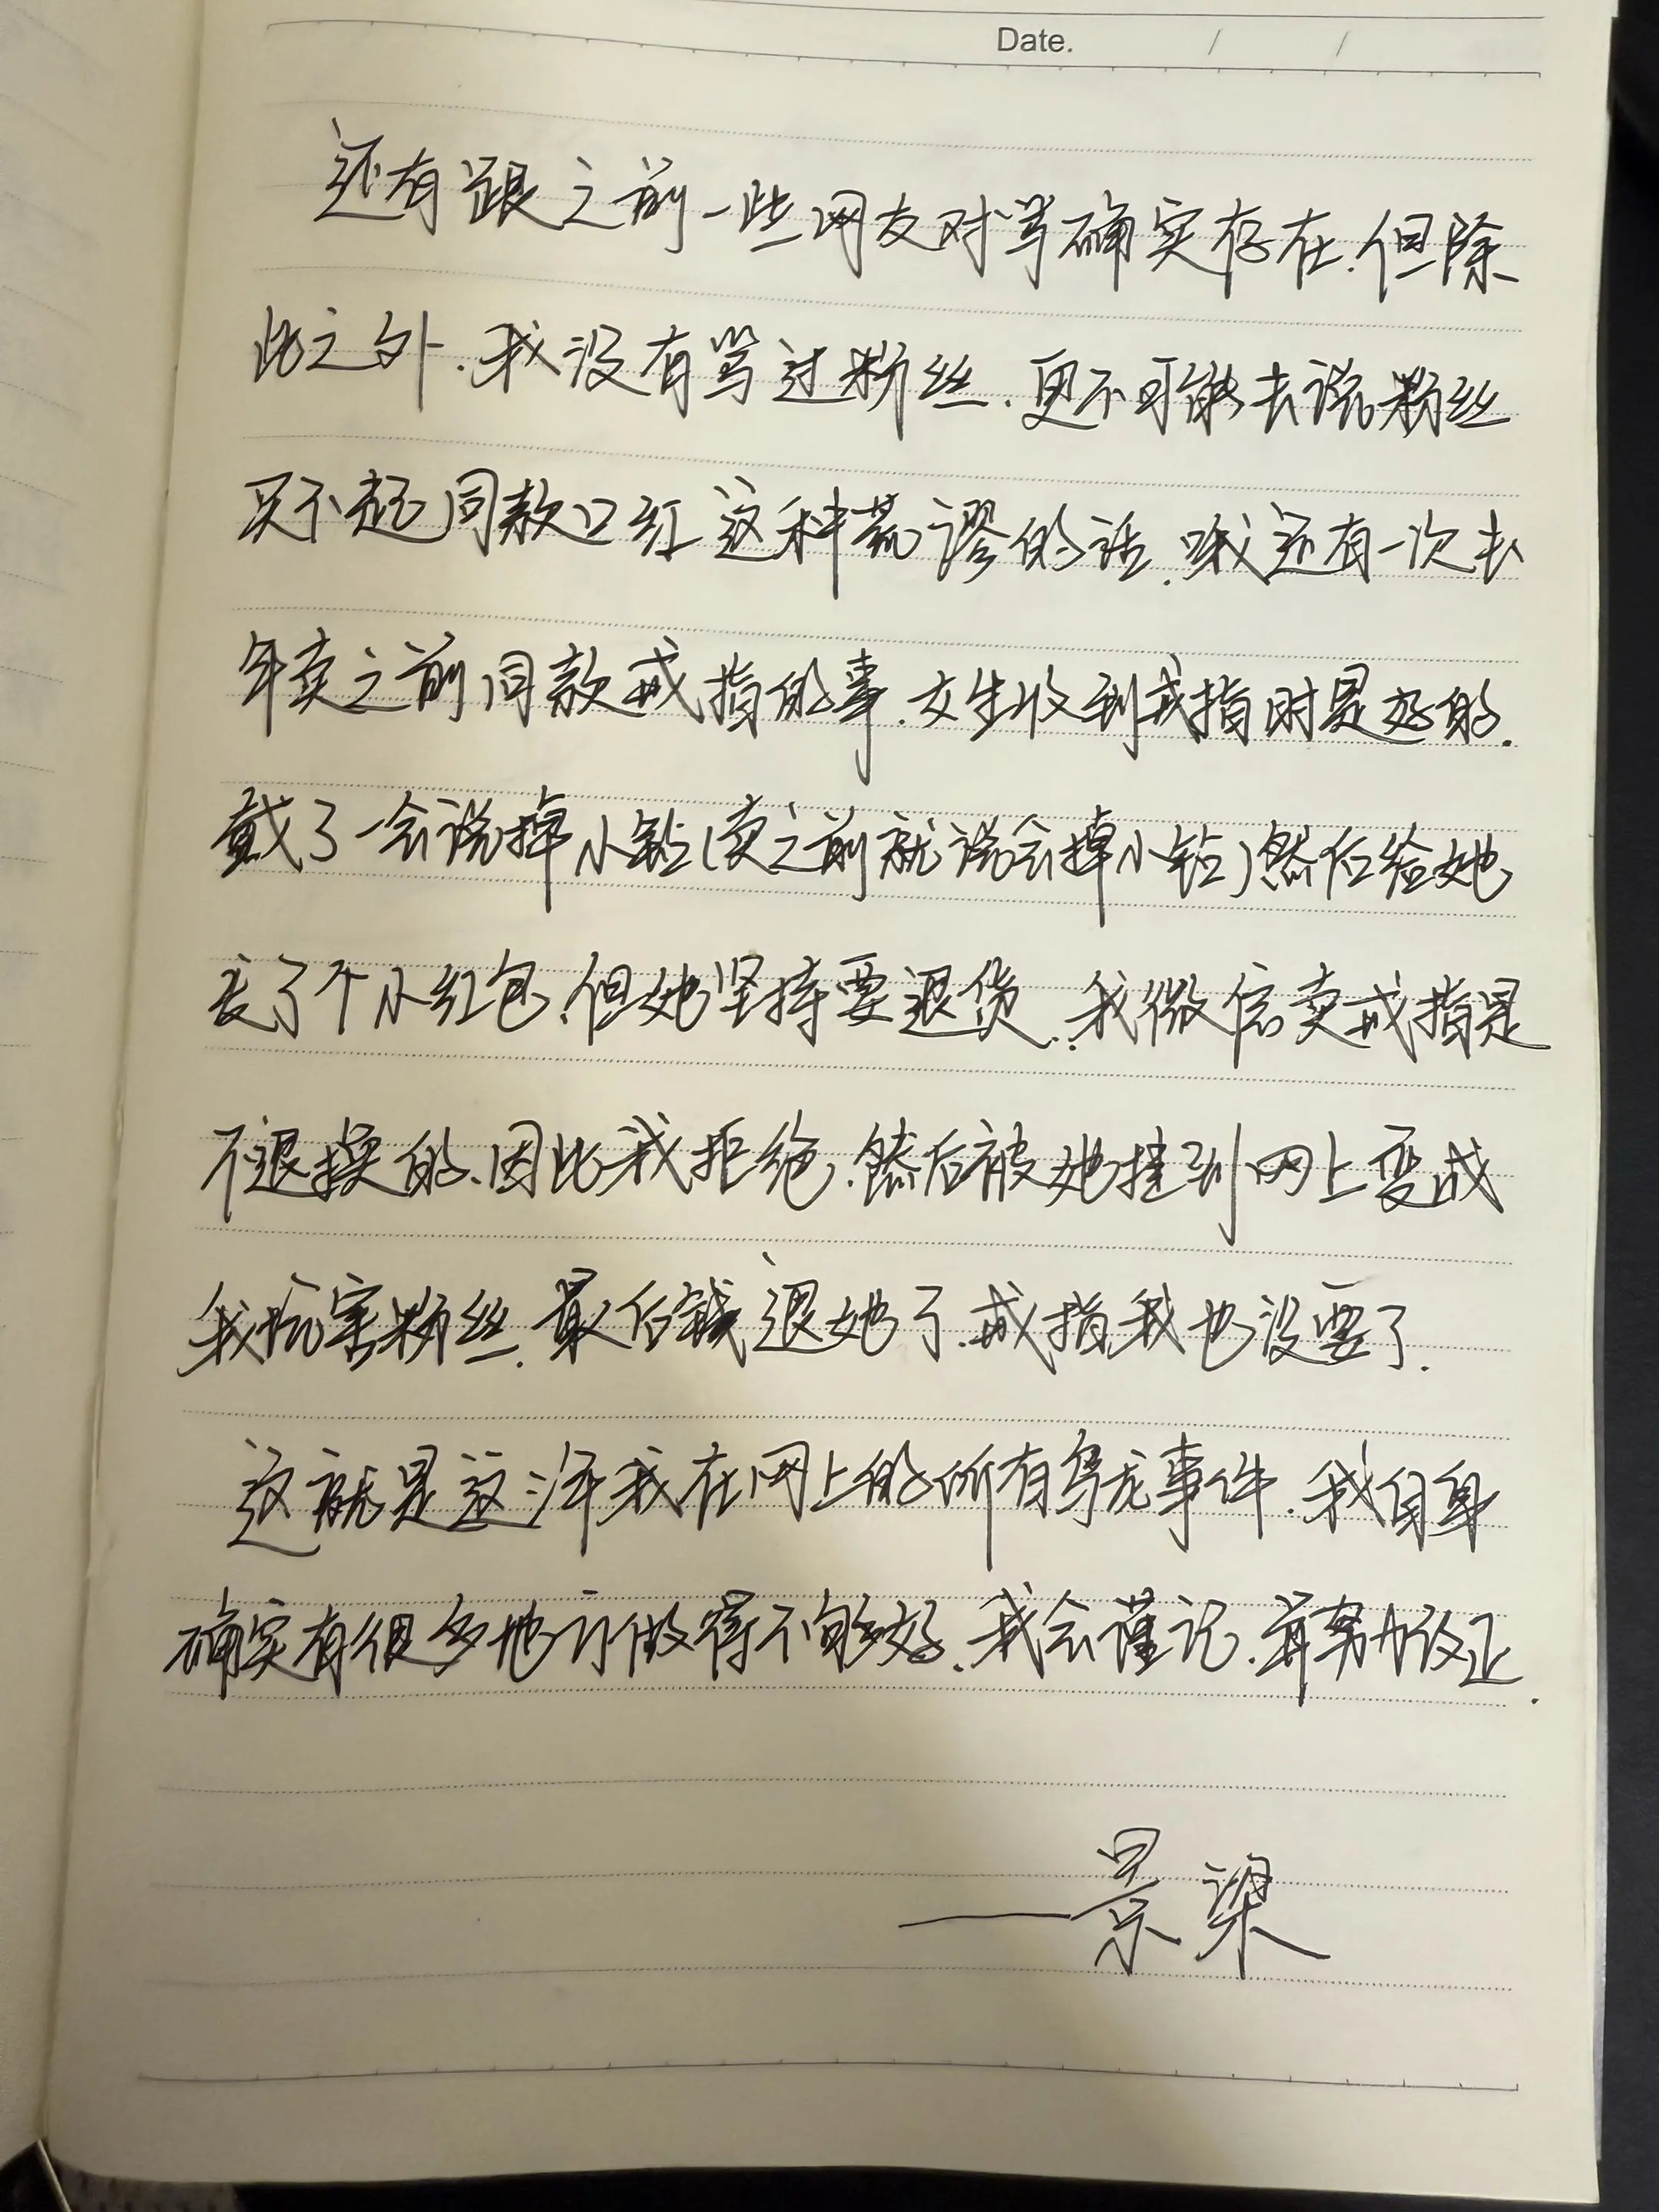 Date. / /
还有跟之前一些网友对骂确实存在.但除
此之外.我没有骂过粉丝.更不可能去说粉丝
买不起同款口红这种荒谬的话.哦还有一次去
年卖之前同款戒指的事.女生收到戒指时是好的.
戴了一会说掉小钻(卖之前就说会掉小钻)然后给她
丢了个小红包.但她坚持要退货.我微信卖戒指是
不退换的.因此我拒绝.然后被她挂到网上变成
我坑害粉丝.最后钱退她了.戒指我也没要了.
这就是这年我在网上的所有乌龙事件.我自身
确实有很多地方做得不够好.我会谨记.并努力改正.
——景梁